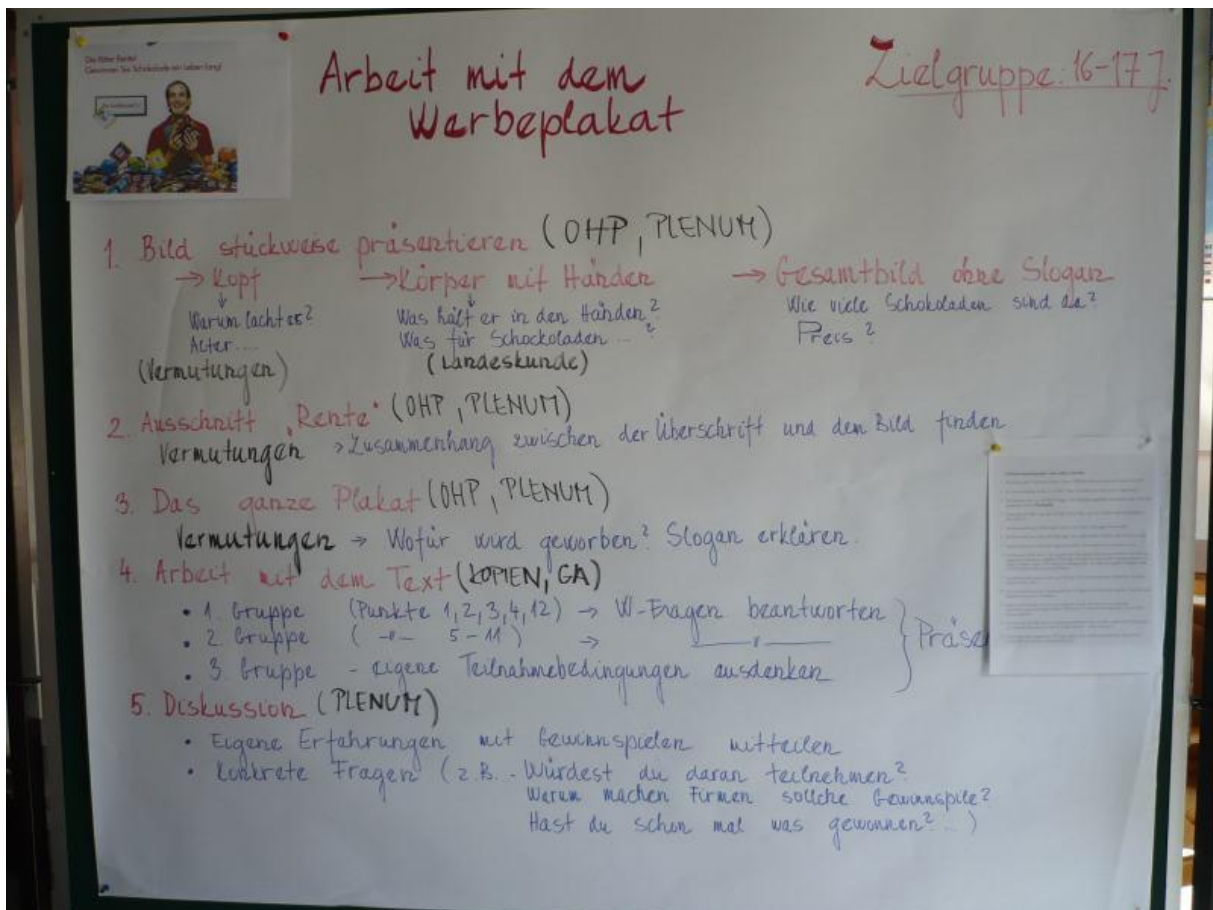 Die Ritter Rente!
Gewinnen Sie Schokolade ein Leben lang!
Arbeit mit dem
Werbeplakat
Zielgruppe: 16-17 J.
1. Bild stückweise präsentieren (OHP, PLENUM)
→ Kopf → Körper mit Händen → Gesamtbild ohne Slogan
Warum lacht er? Was hält er in den Händen? Wie viele Schokoladen sind da?
Alter.... Was für Schockoladen ...? Preis?
(Vermutungen) (Landeskunde)
2. Ausschnitt „Rente" (OHP, PLENUM)
Vermutungen → Zusammenhang zwischen der Überschrift und dem Bild finden
3. Das ganze Plakat (OHP, PLENUM)
Vermutungen → Wofür wird geworben? Slogan erklären.
4. Arbeit mit dem Text (KOPIEN, GA)
• 1. Gruppe (Punkte 1,2,3,4,12) → W-Fragen beantworten
• 2. Gruppe ( -"- 5-11) → -"- Präse
• 3. Gruppe - eigene Teilnahmebedingungen ausdenken
5. Diskussion (PLENUM)
• Eigene Erfahrungen mit Gewinnspielen mitteilen
• Konkrete Fragen (z.B. - Würdest du daran teilnehmen?
Warum machen Firmen sollche Gewinnspile?
Hast du schon mal was gewonnen? ...)